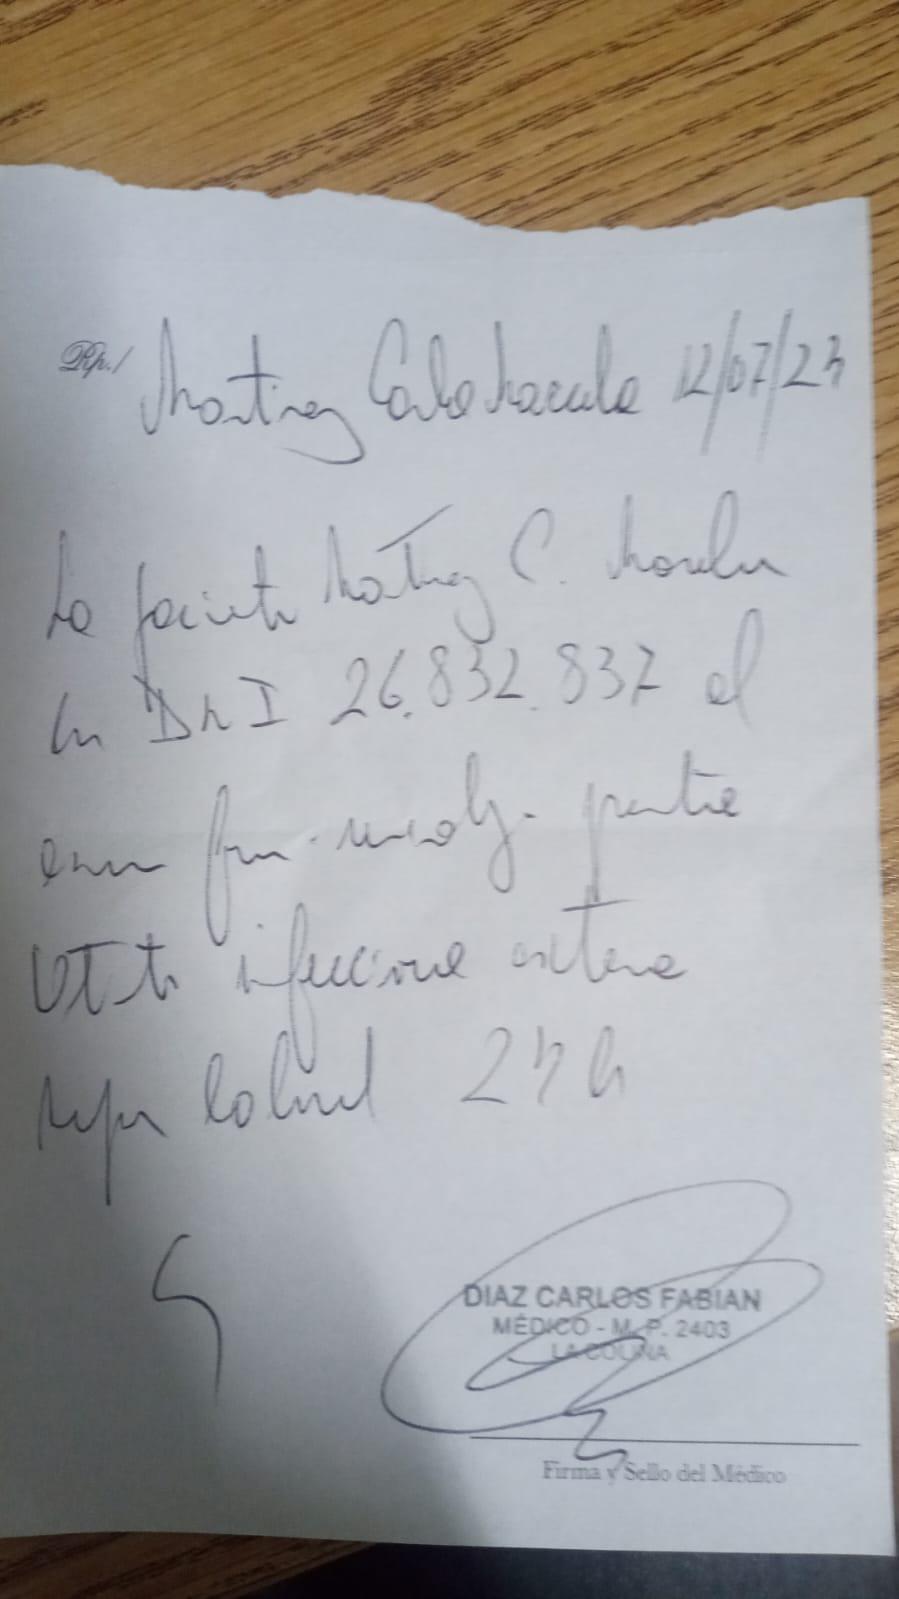 Rp./ Martinez Carla Marcela 12/07/23
La paciente Martinez C. Marcela
con DNI 26.832.837 al
examen presenta
infecciosa externa
laboral 24 h
DIAZ CARLOS FABIAN
MÉDICO - M. P. 2403
LA COLINA
Firma y Sello del Médico